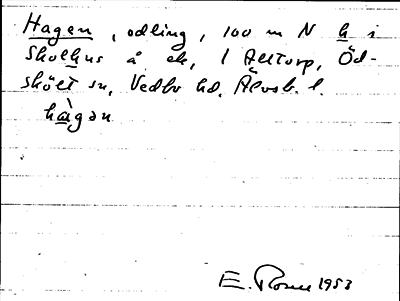 Hagen, odling, 100 m N h i
Skolhus å ek, 1 Alltorp, Öd-
skölt sn, Vedbo hd. Älvsb. l.
hàgən
E. 1953